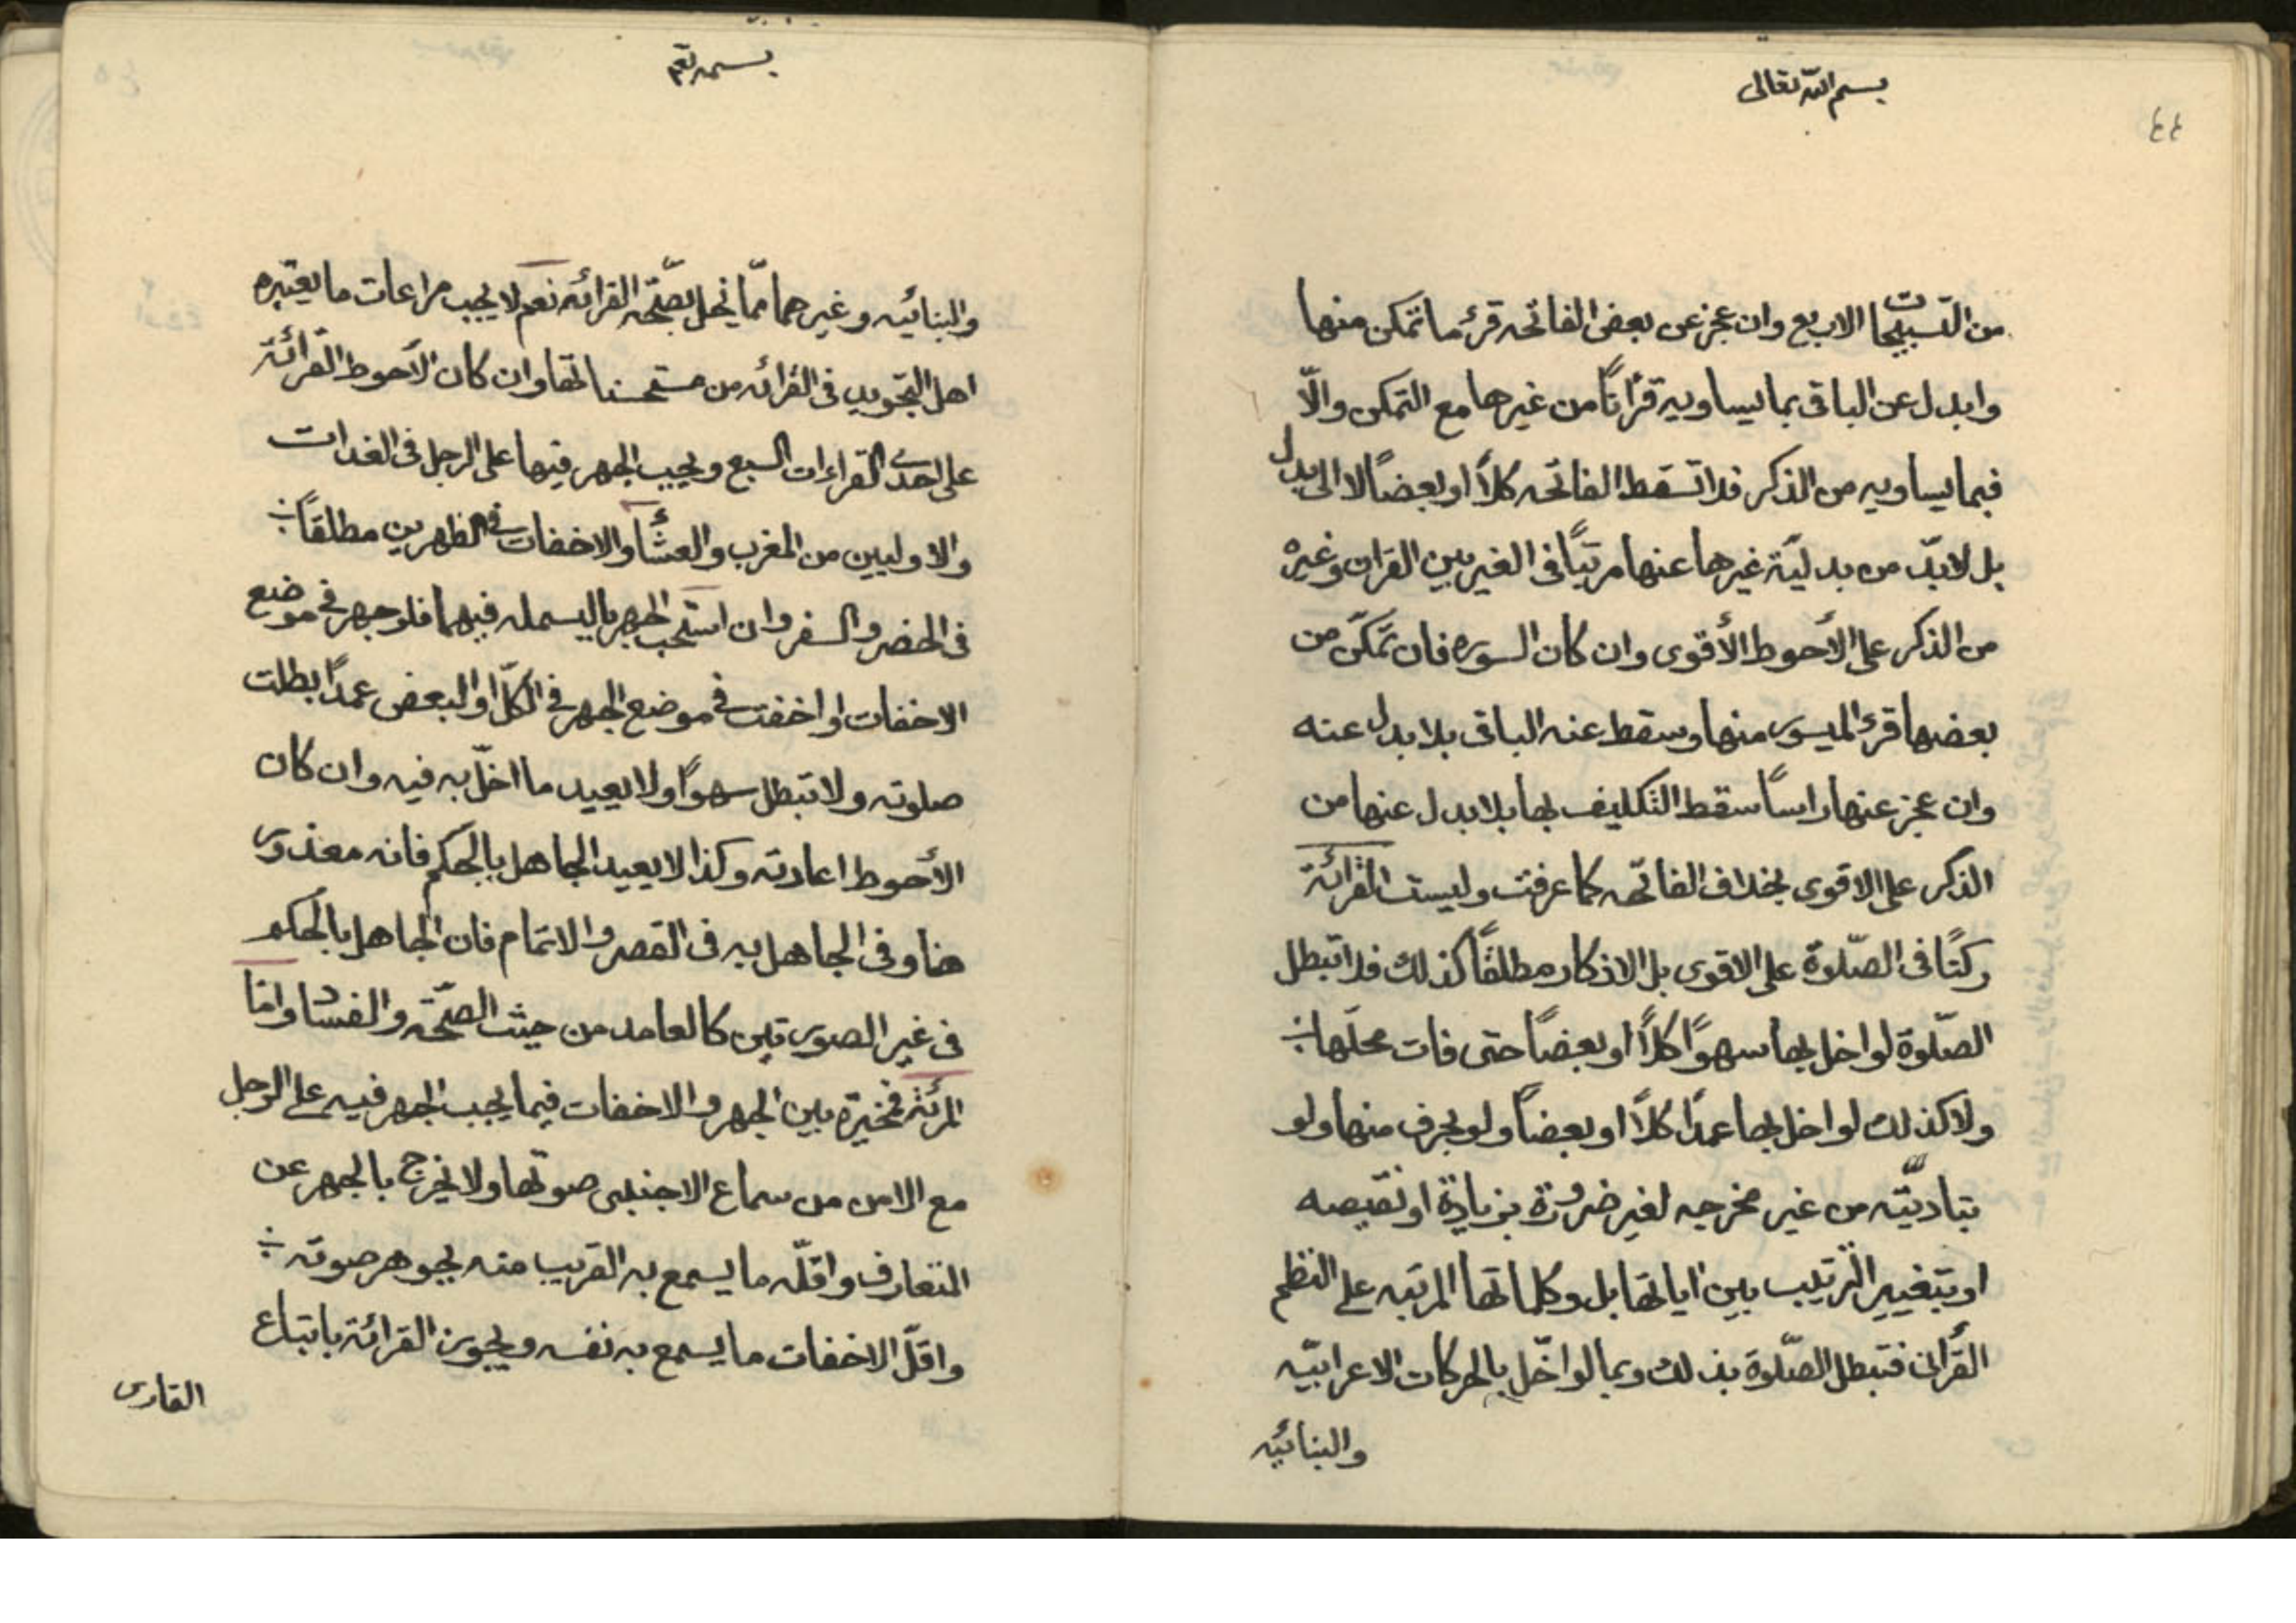 بسم الله تعالى
٤٤
من التسبيحات الاربع وان عجز عن بعض الفاتحه قرء ما تمكن منها
وابدل عن الباقى بما يساويه قرانًا من غيرها مع التمكن والّا
فبما يساويه من الذكر فلا تسقط الفاتحه كلاً او بعضاً لا الى بدل
بل لابدّ من بدليّة غيرها عنها مرتبًا فى الغير بين القران وغيره
من الذكر على الأحوط الأقوى وان كان السوره فان تمكّن من
بعضها قرء الميسور منها وسقط عنه الباقى بلا بدل عنه
وان عجز عنها راساً سقط التكليف بها بلا بدل عنها من
الذكر على الاقوى بخلاف الفاتحه كما عرفت وليست القرائة
ركنًا فى الصّلوة على الاقوى بل الاذكار مطلقًا كذلك فلا تبطل
الصّلوة لو اخل بها سهوًا كلاً او بعضاً حتى فات محلّها
ولا كذلك لو اخل بها عمدًا كلاً او بعضاً ولو بحرف منها ولو
بتاديّته من غير مخرجه لغير ضرورة بزيادة او نقيصه
او بتغيير الترتيب بين اياتها بل وكلماتها المرتبه على النظم
القرانى فتبطل الصّلوة بذلك وبما لو اخّل بالحركات الاعرابيّه
والبنائيه
بسمه تعم
والبنائيه وغيرهما ممّا يخل بصّحه القرائه نعم لا يجب مراعات ما يعتبره
اهل التجويد فى القرائه من مستحسناتها وان كان الأحوط القرائة
على احدى القراءات السبع ويجب الجهر فيها على الرجل فى الغدات
والاوليين من المغرب والعشأ والاخفات فى الظهرين مطلقاً
فى الحضر والسفر وان استحب الجهر بالبسمله فيهما فلو جهر فى موضع
الاخفات او اخفت فى موضع الجهر فى الكلّ او البعض عمدًا بطلت
صلوته ولا تبطل سهوًا ولا يعيد ما اخلّ به فيه وان كان
الأحوط اعادته وكذا لا يعيد الجاهل بالحكم فانه معذور
هنا وفى الجاهل به فى القصر والاتمام فان الجاهل بالحكم
فى غير الصورتين كالعامد من حيث الصّحه والفساد وامّا
المرئة فمخيرة بين الجهر والاخفات فيما يجب الجهر فيه على الرجل
مع الامن من سماع الاجنبى صوتها ولا يخرج بالجهر عن
المتعارف واقلّه ما يسمع به القريب منه بجوهر صوته
واقلّ الاخفات ما يسمع به نفسه ويجوز القرائة باتباع
القارى